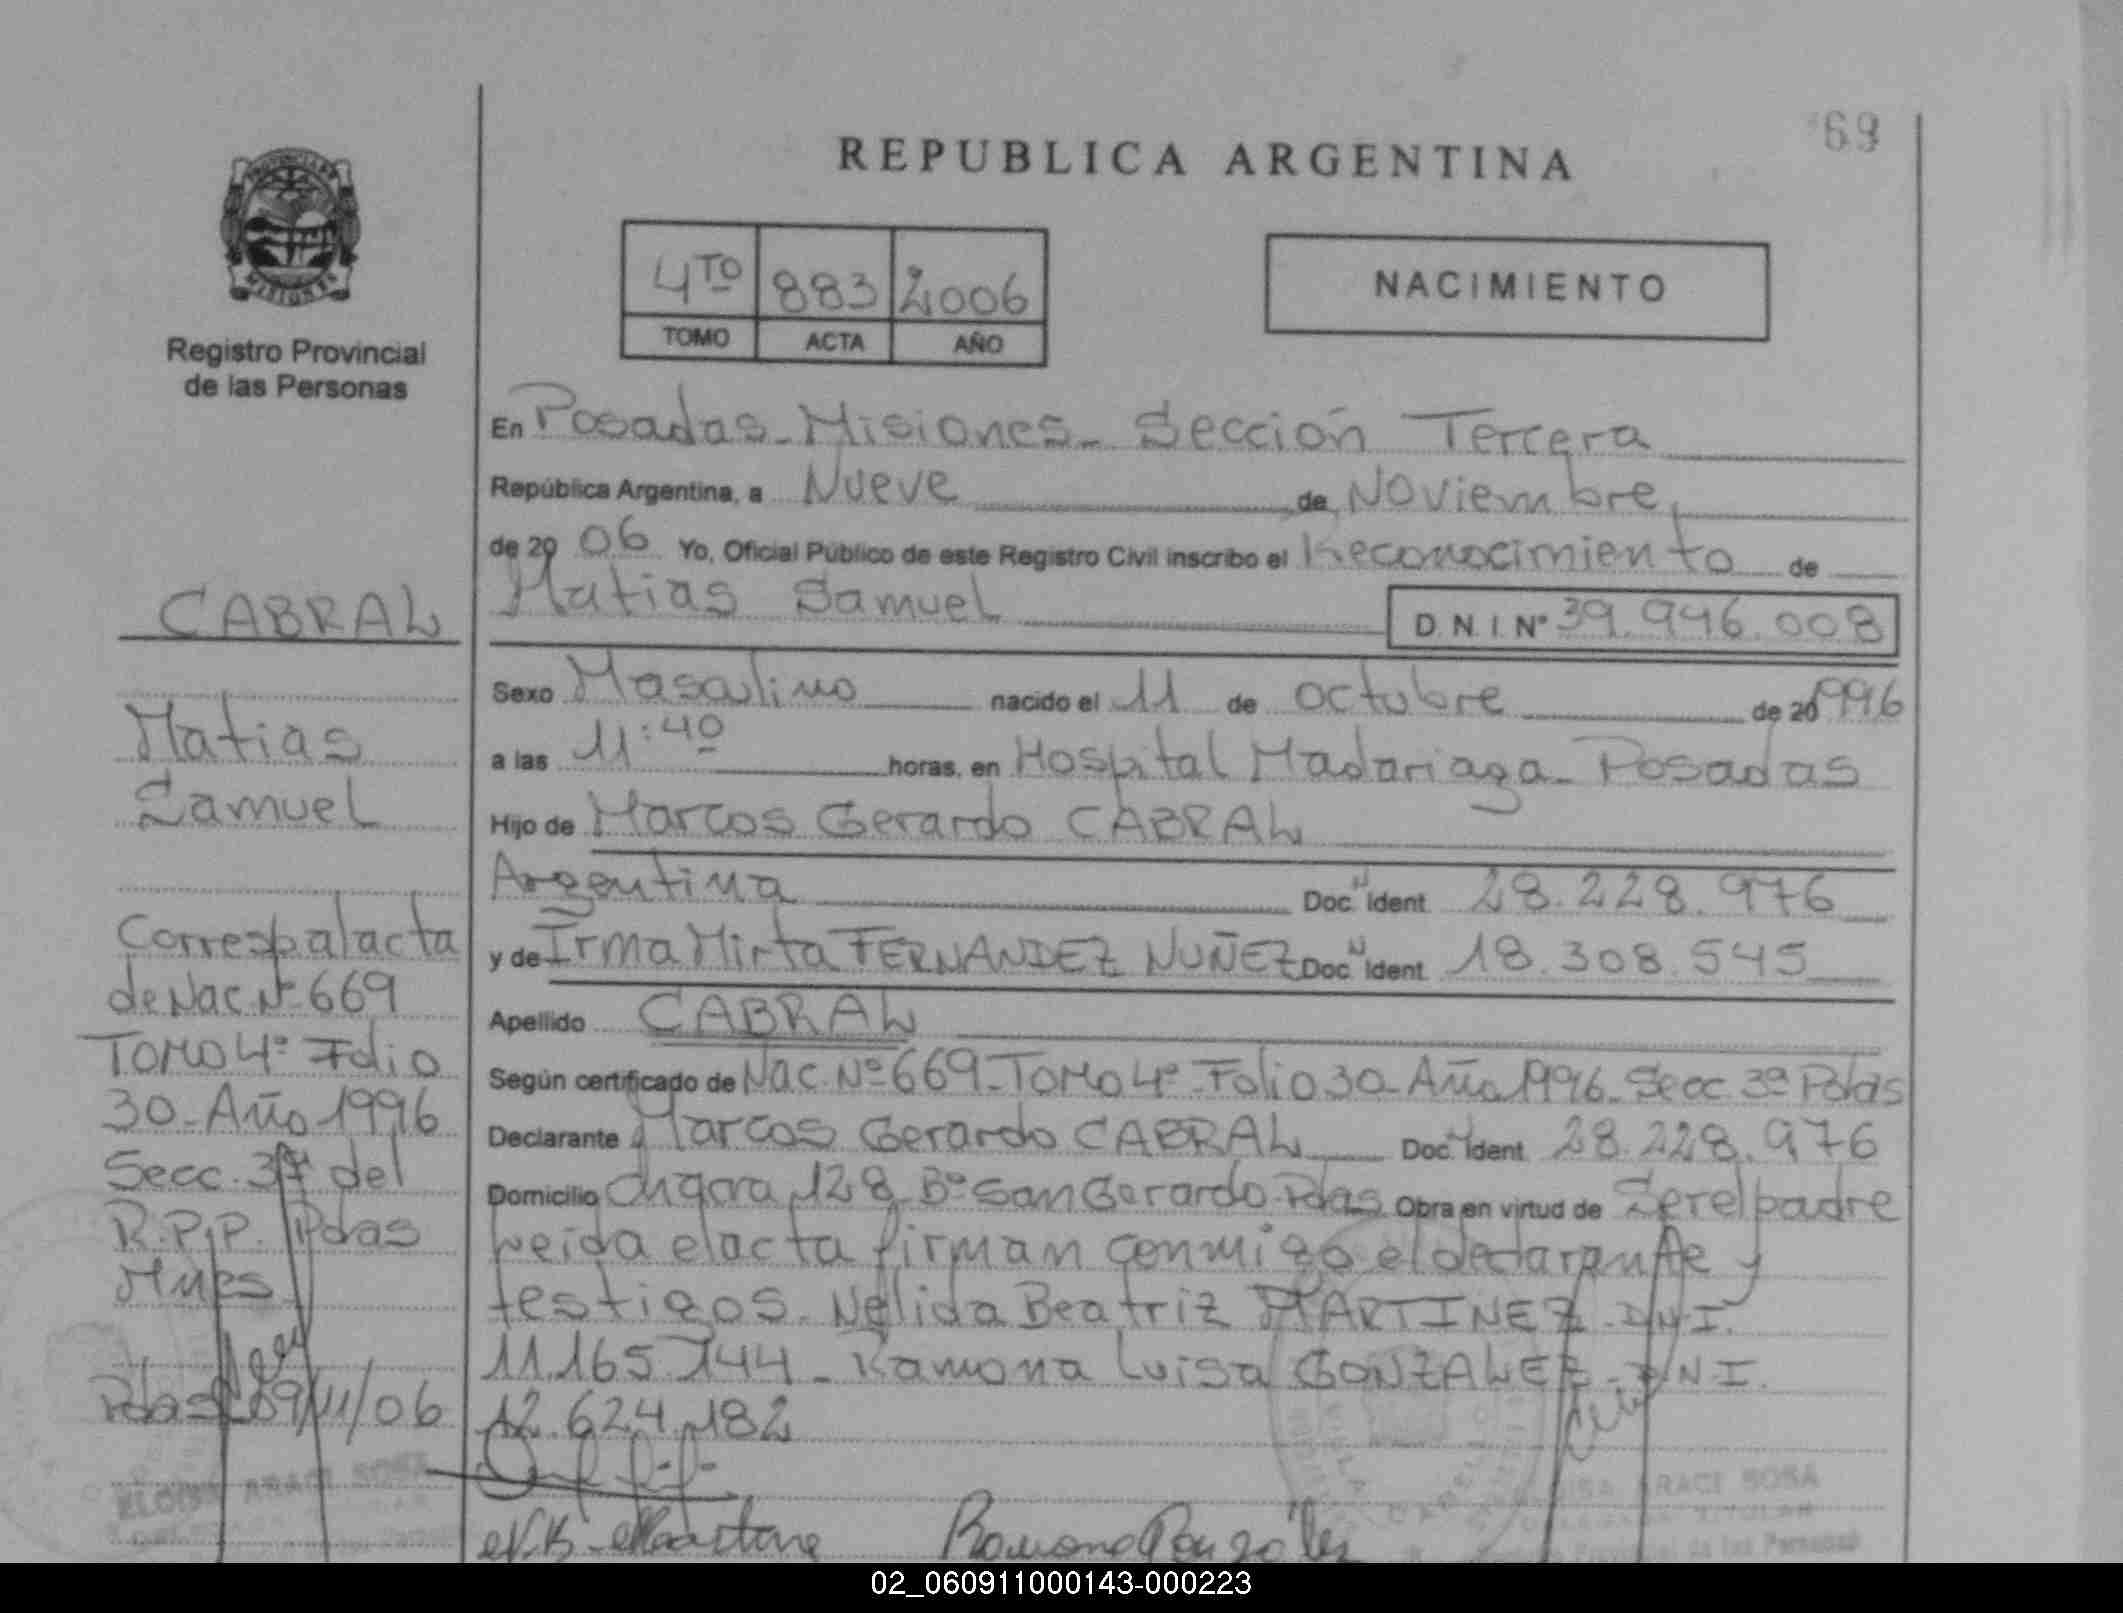 69
REPUBLICA ARGENTINA
PROVINCIA DE
MISIONES
Registro Provincial
de las Personas
4TO 883 2006
TOMO ACTA AÑO
NACIMIENTO
En Posadas - Misiones - Sección Tercera
República Argentina, a Nueve de Noviembre
de 20 06 Yo, Oficial Público de este Registro Civil inscribo el Reconocimiento de
Matias Samuel D.N.I.Nº 39.946.008
Sexo Masculino nacido el 11 de octubre de 20 1996
a las 11:40 horas, en Hospital Madariaga - Posadas
Hijo de Marcos Gerardo CABRAL
Argentina Doc. N Ident. 28.228.976
y de Irma Mirta FERNANDEZ NUÑEZ Doc. N Ident. 18.308.545
Apellido CABRAL
Según certificado de Nac. Nº 669 - Tomo 4º - Folio 30 - Año 1996 - Secc. 3ª Pdas
Declarante Marcos Gerardo CABRAL Doc. N Ident. 28.228.976
Domicilio 128 Bº San Gerardo - Pdas. Obra en virtud de Ser el padre
Leida el acta firman conmigo el declarante y
testigos. Nélida Beatriz MARTINEZ - D.N.I.
11.165.744 - Ramona Luisa GONZALEZ - D.N.I.
12.624.182
CABRAL
Matias
Samuel
Corresp al acta
de Nac. Nº 669
TOMO 4º Folio
30 - Año 1996
Secc. 3ª del
R.P.P. Pdas
Mnes
Pdas 09/11/06
ELOISA ARACI SOSA
ELOISA ARACI SOSA
DELEGADA TITULAR
Registro Provincial de las Personas
Ramona Gonzalez
02_060911000143-000223